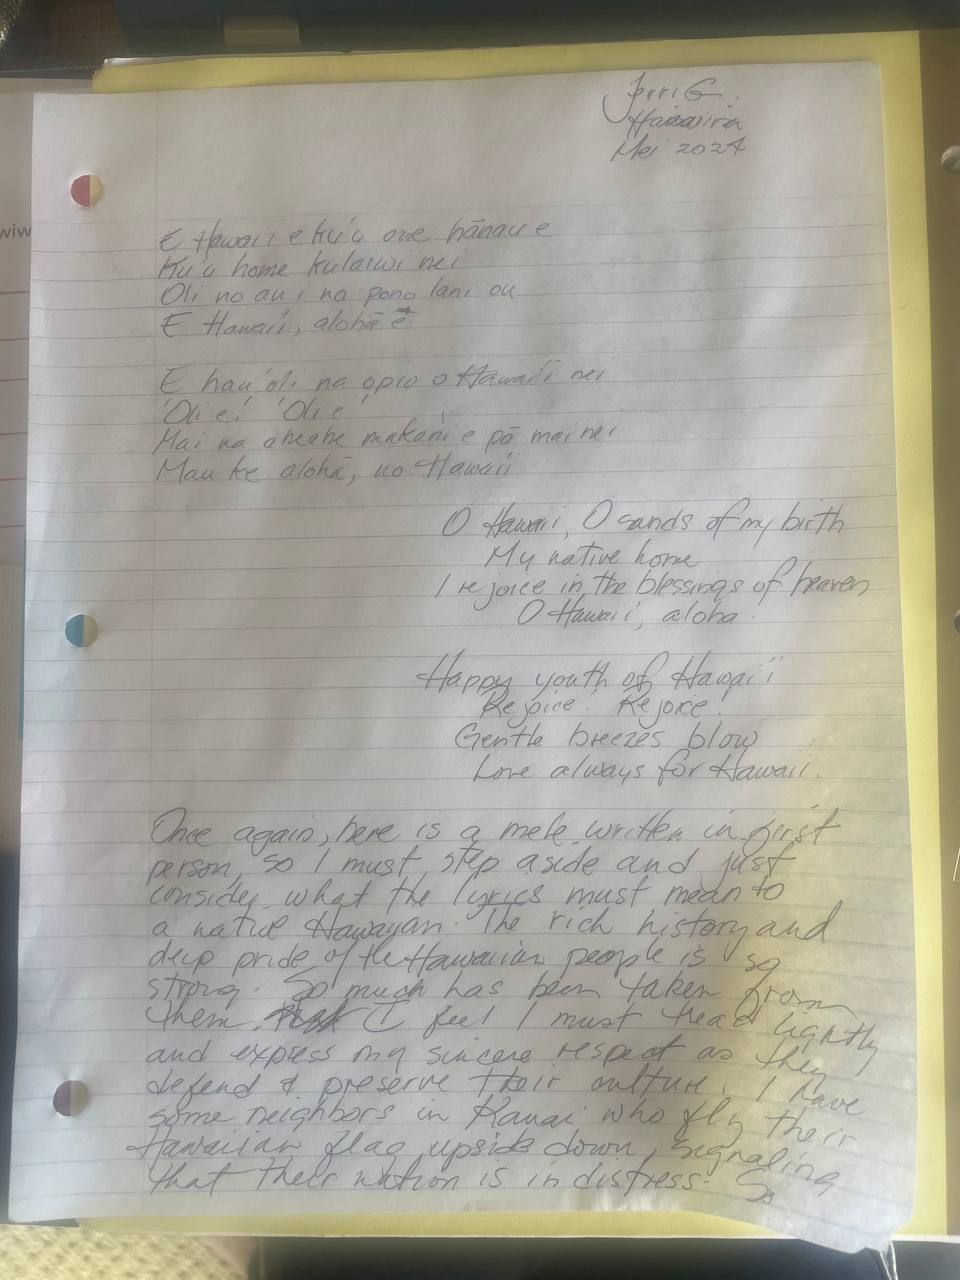 Jerri G.
Mei 2024
E Hawaii e ku'u one hānau e
Ku'u home kulaiwi nei
Oli no au i na pono lani ou
E Hawai'i, alohā ē
E hau'oli na opio o Hawai'i nei
'Oli e! 'Oli e!
Mai na aheahe makani e pā mai nei
Mau ke alohā, no Hawaii
O Hawaii, O sands of my birth
My native home
I rejoice in the blessings of heaven
O Hawai'i, aloha.
Happy youth of Hawai'i
Rejoice! Rejoice!
Gentle breezes blow
Love always for Hawaii.
Once again, here is a mele written in first
person, so I must step aside and just
consider what the lyrics must mean to
a native Hawayan. The rich history and
deep pride of the Hawaiian people is so
strong. So much has been taken from
them. I feel I must tread lightly
and express my sincere respect as they
defend & preserve their culture. I have
some neighbors in Kauai who fly their
Hawaiian flag upside down, signaling
that their nation is in distress. So
wiw